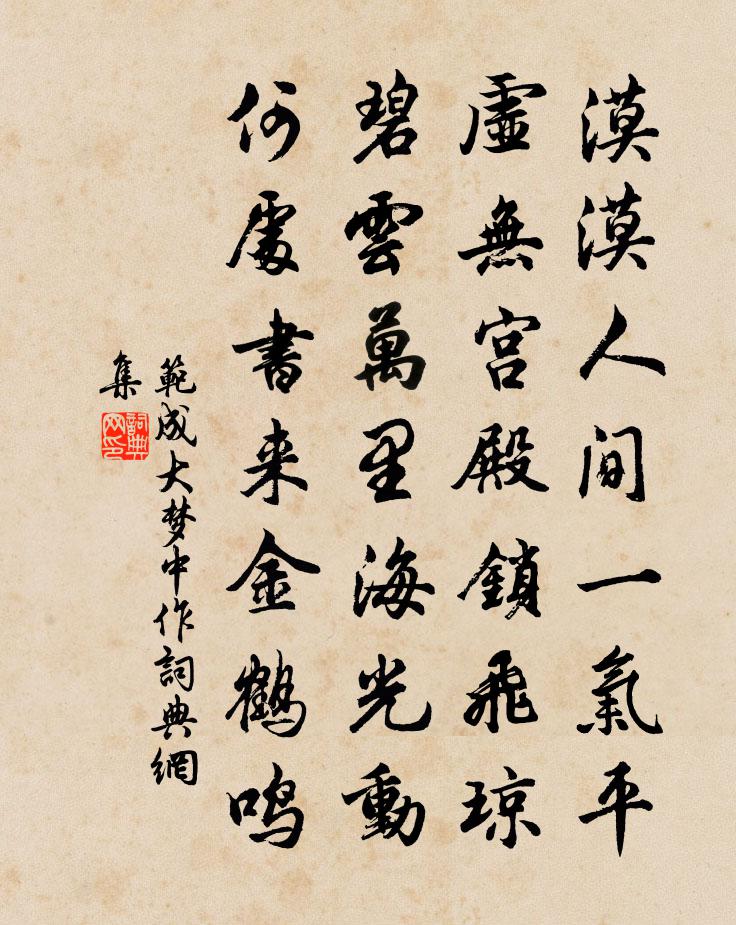 漠漠人间一氣平
虛無宫殿鎖飛琼
碧雲萬里海光動
何處書来金鹤鸣
範成大梦中作詞典網
集
詞典
网印